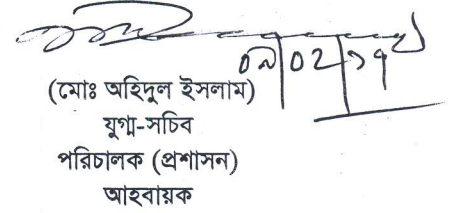 ০৯/০২/১৭
(মোঃ অহিদুল ইসলাম)
যুগ্ম-সচিব
পরিচালক (প্রশাসন)
আহবায়ক